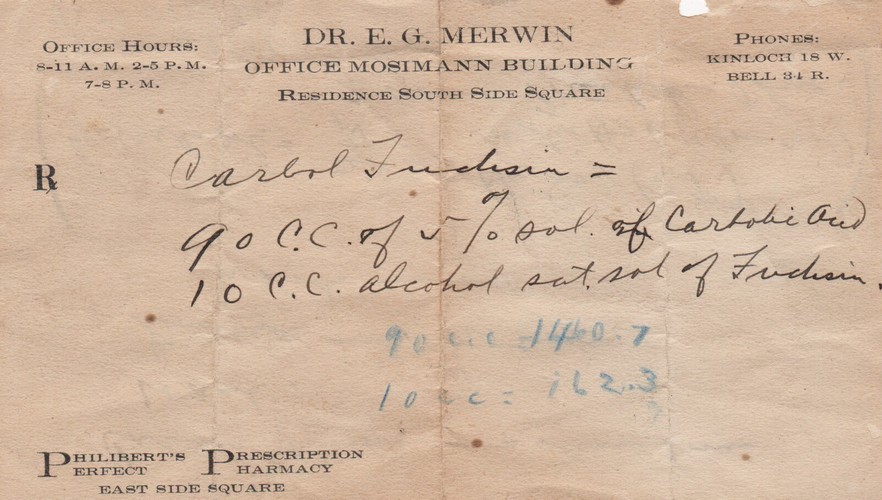 OFFICE HOURS:
8-11 A. M. 2-5 P. M.
7-8 P. M.
DR. E. G. MERWIN
OFFICE MOSIMANN BUILDING
RESIDENCE SOUTH SIDE SQUARE
PHONES:
KINLOCH 18 W.
BELL 34 R.
℞
Carbol Fuchsin =
90 C.C. of 5 % sol. of Carbolic Acid
10 C.C. alcohol sat. sol of Fuchsin.
90 cc = 1460.7
10 cc = 162.3
PHILIBERT'S PERFECT PRESCRIPTION PHARMACY
EAST SIDE SQUARE